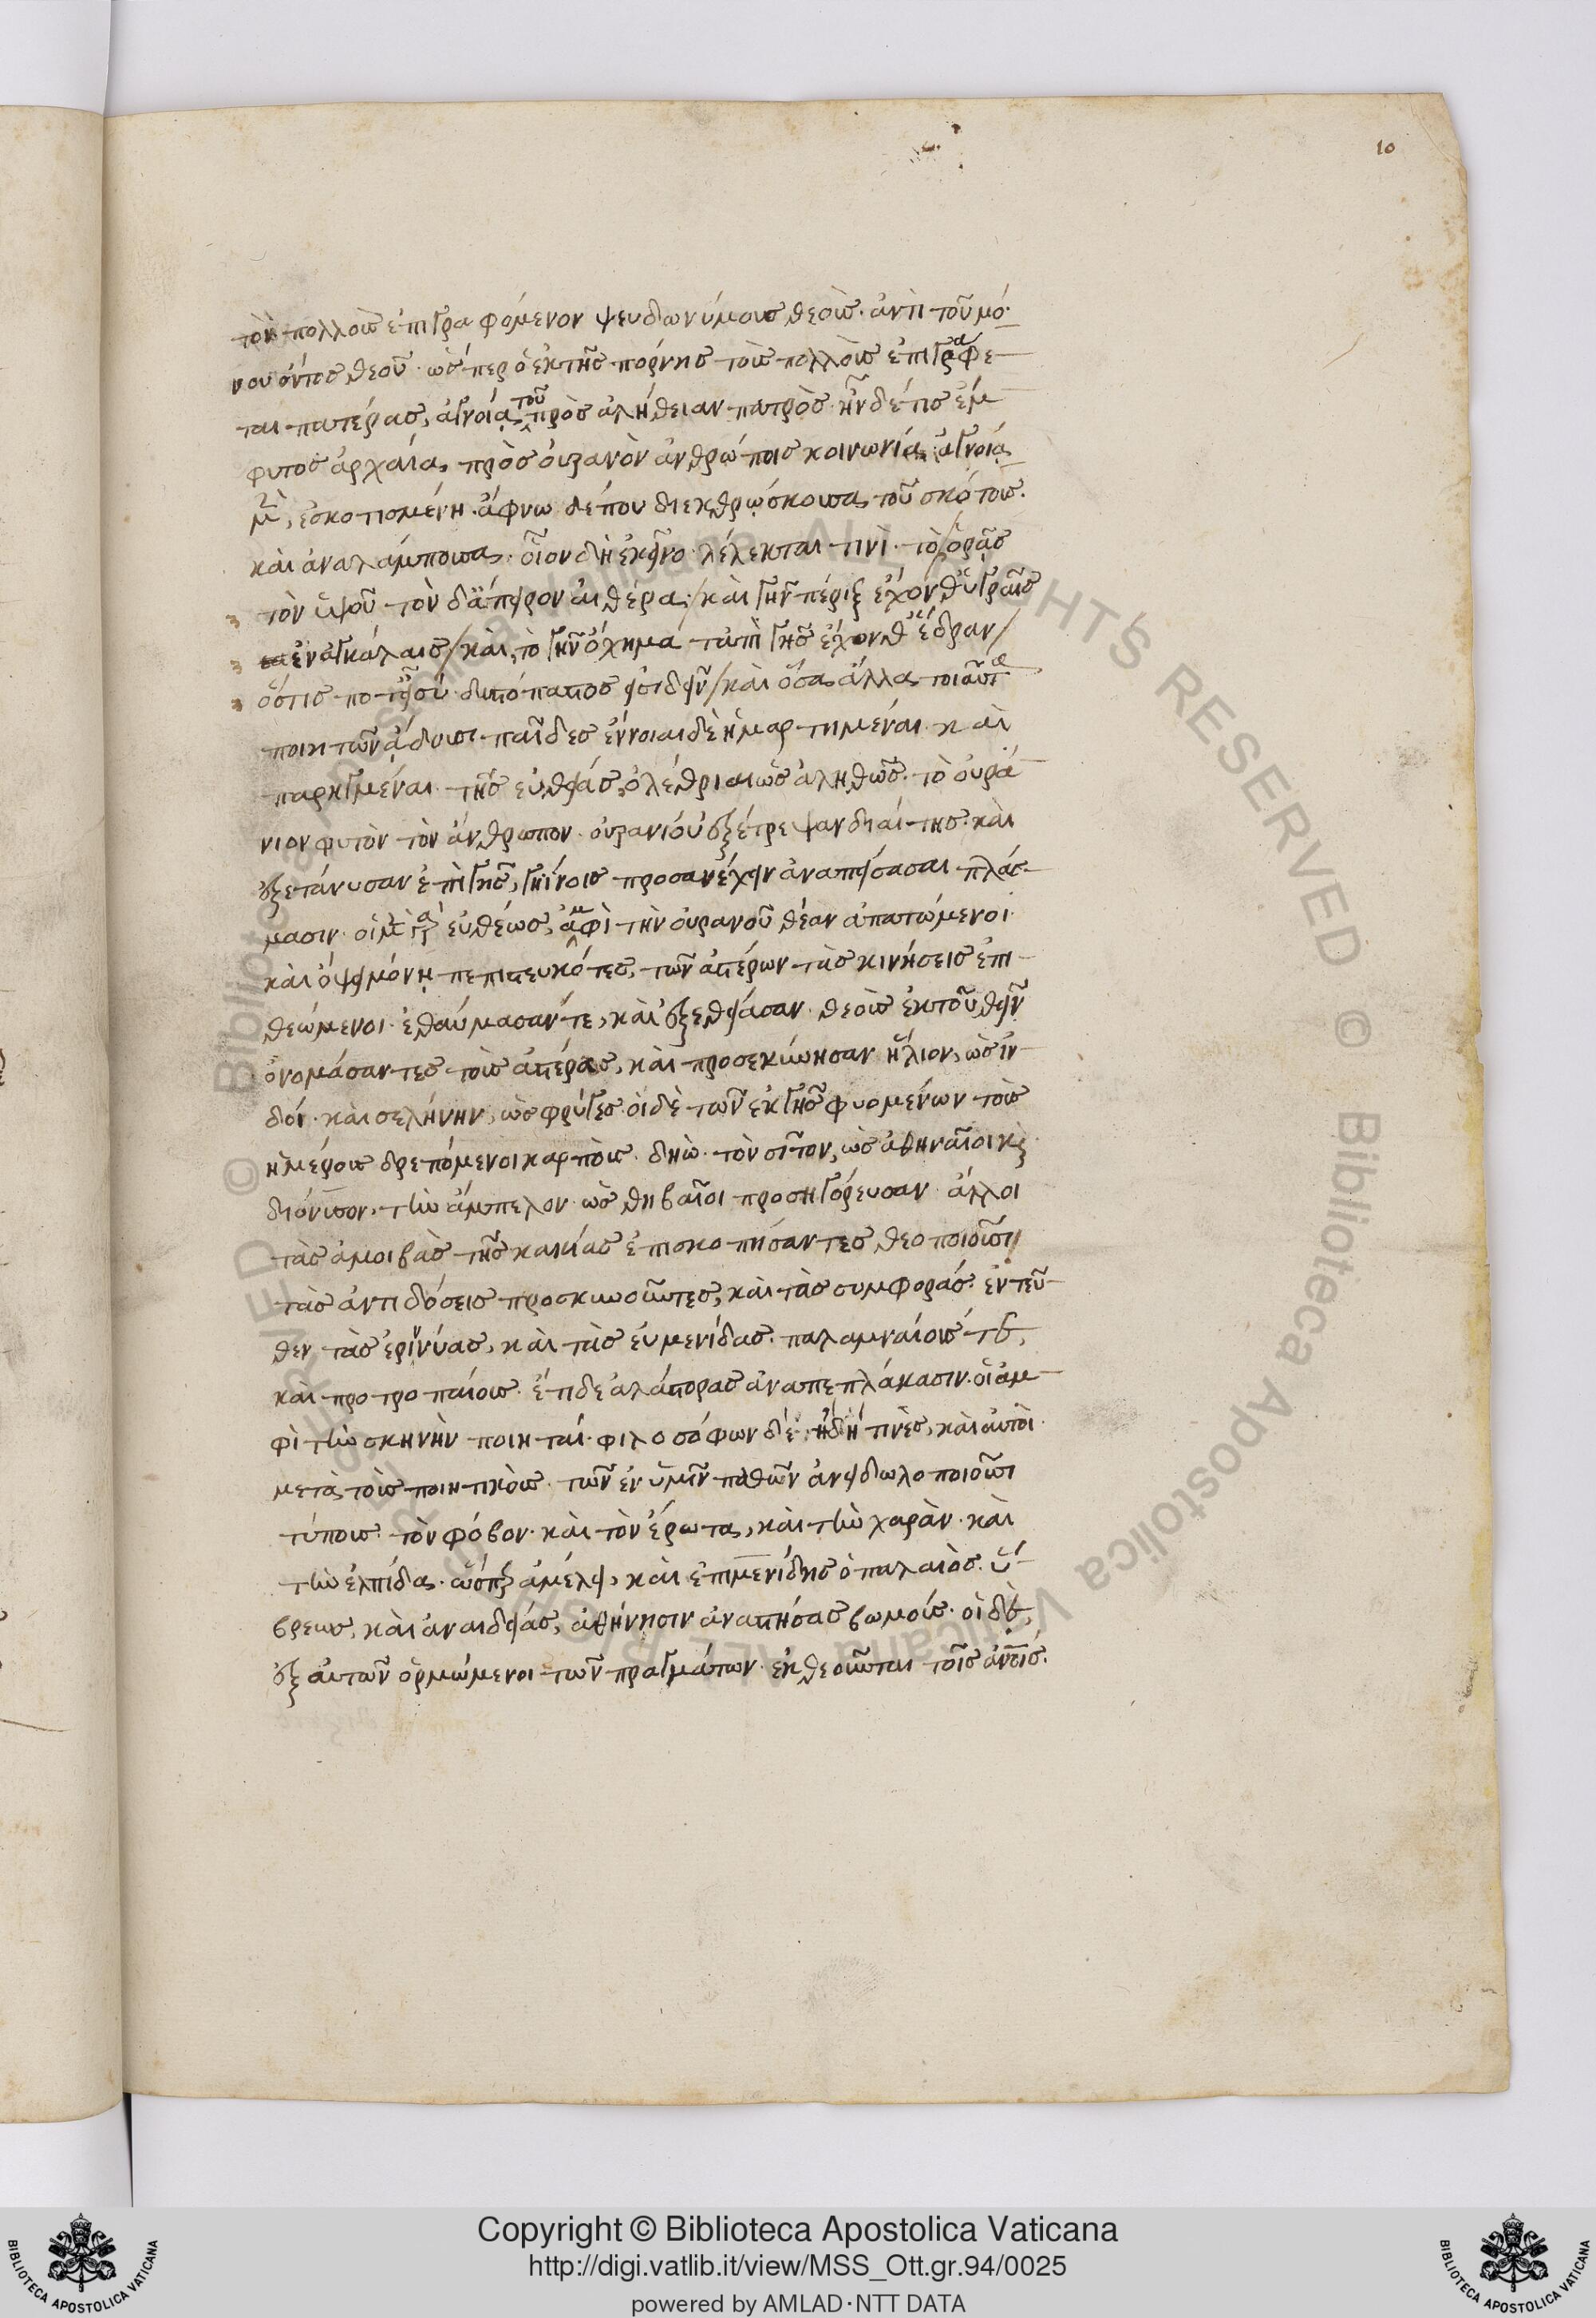 10
τὸν πολλοὺς ἐπιγραφόμενον ψευδωνύμους θεοὺς· ἀντὶ τοῦ μό-
νου ὄντος θεοῦ· ὥσπερ ὁ ἐκ τῆς πόρνης τοὺς πολλοὺς ἐπιγράφε-
ται πατέρας, ἀγνοίᾳ τοῦ πρὸς ἀλήθειαν πατρός· ἦν δέ τις ἔμ-
φυτος ἀρχαία, πρὸς οὐρανὸν ἀνθρώποις κοινωνία, ἀγνοίᾳ
μὲν, ἐσκοτισμένη· ἄφνω δέ που διεκθρώσκουσα τοῦ σκότους·
καὶ ἀναλάμπουσα· οἷον δὴ ἐκεῖνο λέλεκταί τινι· τὸ ὁρᾷς
τὸν ὑψοῦ τὸν δάπειρον αἰθέρα / καὶ γῆν πέριξ ἔχονθ' ὑγραῖς
ἐν ἀγκάλαις / καὶ, τὸ γῆς ὄχημα κἀπὶ γῆς ἔχονθ' ἕδραν /
ὅστις ποτ' εἶ σύ· δυστόπαστος εἰσιδεῖν / καὶ ὅσα ἄλλα τοιαῦτα
ποιητῶν ᾄδουσι παῖδες ἔννοιαι δὲ ἡμαρτημέναι· καὶ
παρηγμέναι τῆς εὐθείας, ὀλέθριαι ὡς ἀληθῶς· τὸ οὐρά-
νιον φυτὸν τὸν ἄνθρωπον· οὐρανίου ἐξέτρεψαν διαίτης· καὶ
ἐξετάνυσαν ἐπὶ γῆς, γηίνοις προσανέχειν ἀναπείσασαι πλάσ-
μασιν· οἱ μὲν γὰρ εὐθέως, ἀμφὶ τὴν οὐρανοῦ θέαν ἀπατώμενοι·
καὶ ὄψει μόνῃ πεπιστευκότες, τῶν ἀστέρων τὰς κινήσεις ἐπι-
θεώμενοι· ἐθαύμασάν τε, καὶ ἐξεθείασαν· θεοὺς ἐκ τοῦ θεῖν
ὀνομάσαντες τοὺς ἀστέρας, καὶ προσεκύνησαν ἥλιον, ὡς ἰν-
δοί· καὶ σελήνην, ὡς φρύγες· οἱ δὲ τῶν ἐκ γῆς φυομένων τοὺς
ἡμέρους δρεπόμενοι καρποὺς· δηὼ τὸν σῖτον, ὡς ἀθηναῖοι καὶ
διόνυσον· τὴν ἄμπελον· ὡς θηβαῖοι προσηγόρευσαν· ἄλλοι
τὰς ἀμοιβὰς τῆς κακίας ἐπισκοπήσαντες θεοποιοῦσι
τὰς ἀντιδόσεις προσκυνοῦντες, καὶ τὰς συμφοράς· ἐντεῦ-
θεν τὰς ἐρινύας, καὶ τὰς εὐμενίδας· παλαμναίους τε,
καὶ προτροπαίους· ἔτι δὲ ἀλάστορας ἀναπεπλάκασιν· οἱ ἀμ-
φὶ τὴν σκηνὴν ποιηταί· φιλοσόφων δὲ ἤδη τινὲς, καὶ αὐτοὶ
μετὰ τοὺς ποιητικοὺς· τῶν ἐν ὑμῖν παθῶν ἀνειδωλοποιοῦσι
τύπους· τὸν φόβον· καὶ τὸν ἔρωτα, καὶ τὴν χαρὰν· καὶ
τὴν ἐλπίδα· ὥσπερ ἀμέλει, καὶ ἐπιμενίδης ὁ παλαιὸς· ὕ-
βρεως, καὶ ἀναιδείας, ἀθήνησιν ἀναστήσας βωμούς· οἱ δὲ,
ἐξ αὐτῶν ὁρμώμενοι τῶν πραγμάτων· ἐκθεοῦνται τοῖς ἀττικοῖς.
Copyright © Biblioteca Apostolica Vaticana
http://digi.vatlib.it/view/MSS_Ott.gr.94/0025
powered by AMLAD·NTT DATA